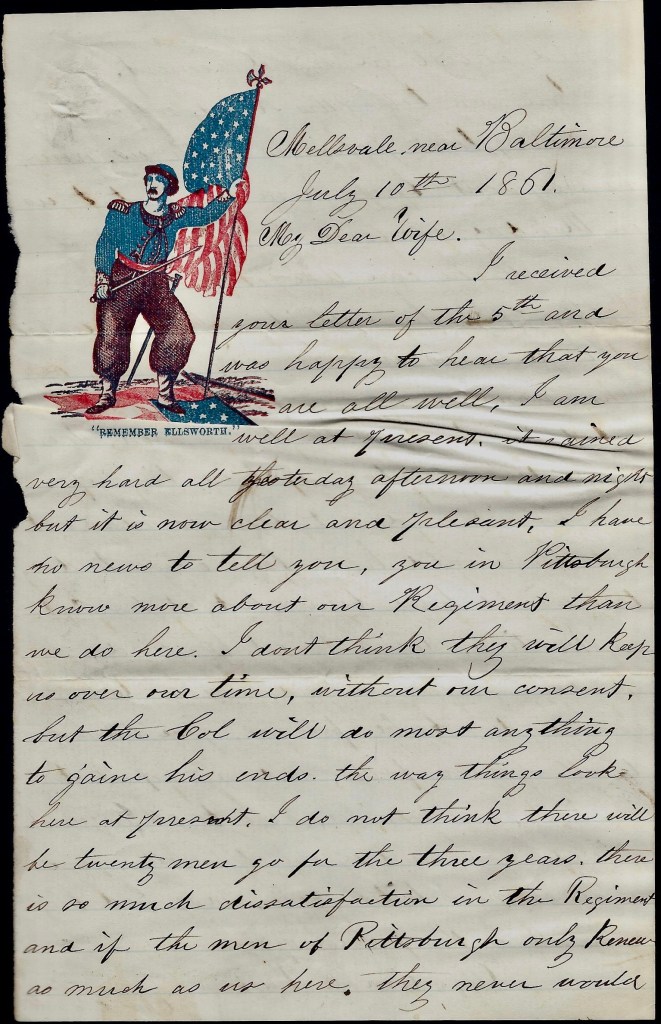 Mellsvale near Baltimore
July 10th 1861.
My Dear Wife.
I received
your letter of the 5th and
was happy to hear that you
are all well, I am
"REMEMBER ELLSWORTH."
well at present. it rained
very hard all yesterday afternoon and night
but it is now clear and plesant, I have
no news to tell you, you in Pittsburgh
know more about our Regiment than
we do here. I dont think they will keep
us over our time, without our consent,
but the Col will do most anything
to gaine his ends. the way things look
here at present. I do not think there will
be twenty men go for the three years. there
is so much dissatisfaction in the Regiment
and if the men of Pittsburgh only Knew
as much as us here. they never would